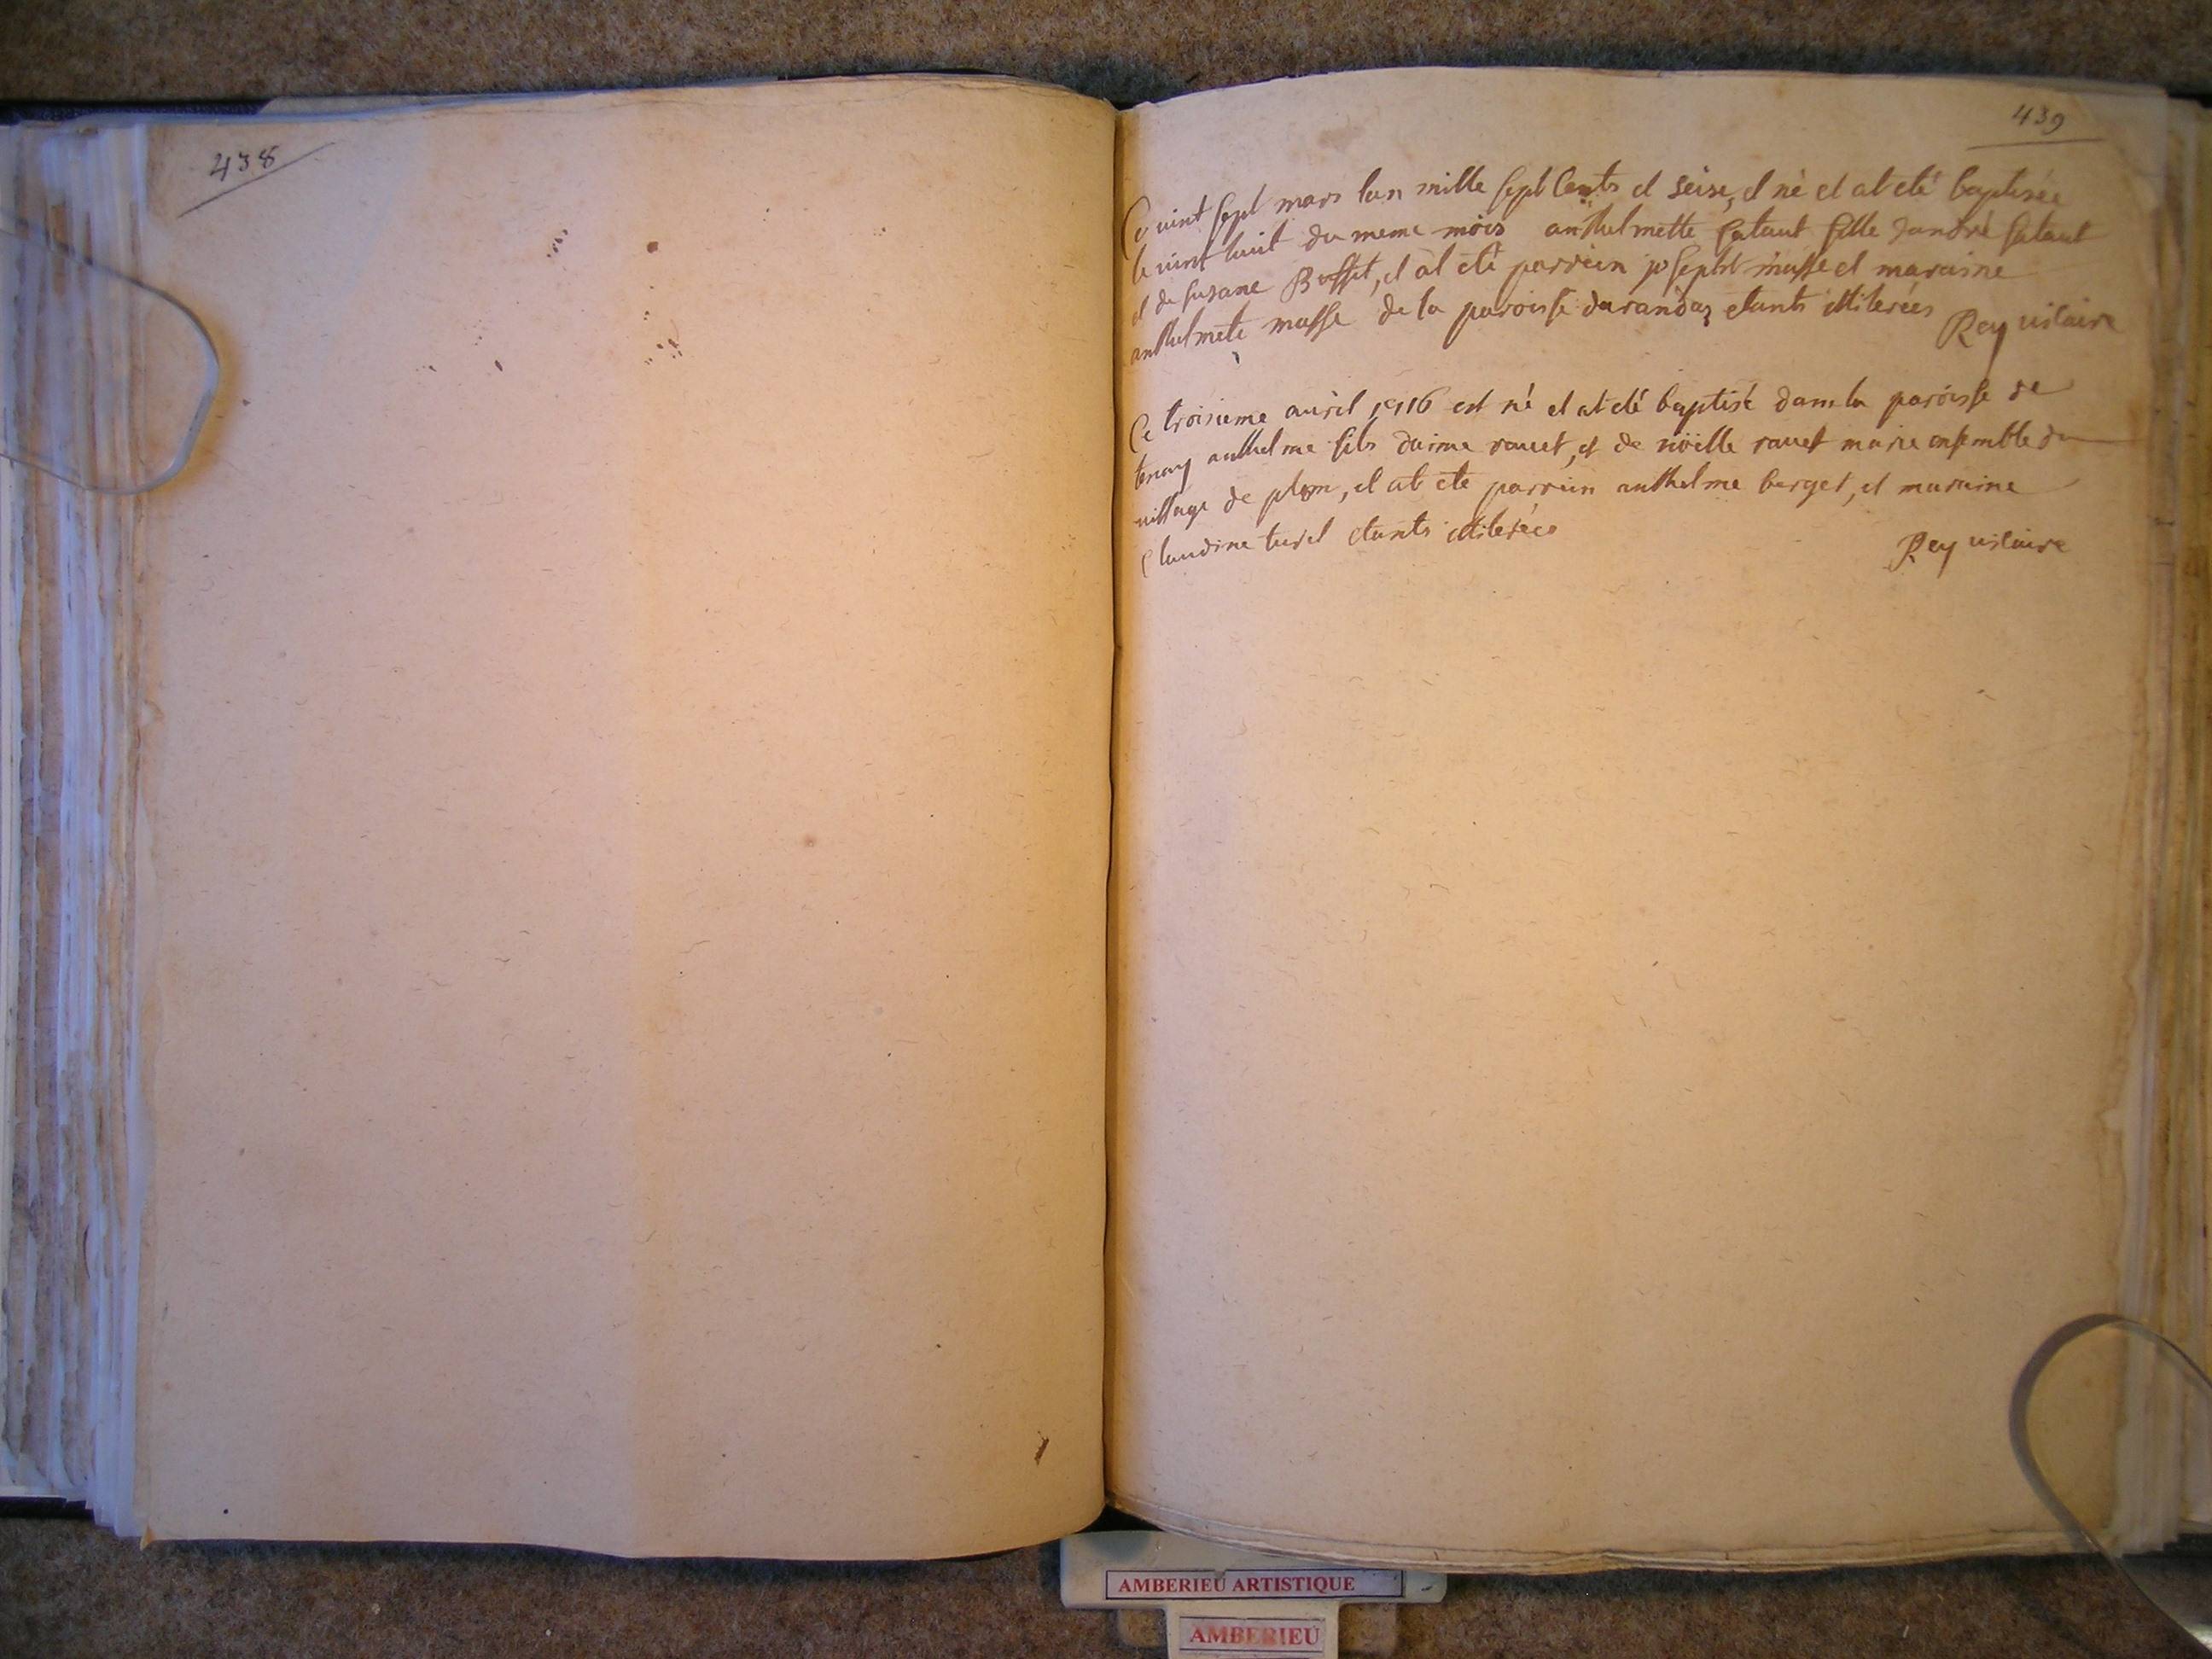 438
439
Ce vint sept mars lan mille sept Cents et seise, et né et at eté baptisée
le vint huit du meme mois anthelmette fataut fille dandré fataut
et de susane Bosset, et at eté parrein joseph musse et maraine
anthelmete musse de la paroisse darandaz etants illiterées
Rey vicaire
Ce troisieme avril 1716 est né et at eté baptisé dans la paroisse de
tenay anthelme fils daime ravet, et de noëlle ravet marie ensemble du
village de plom, et at ete parrein anthelme berget, et maraine
Claudine turel etants illiterées
Rey vicaire
AMBERIEU ARTISTIQUE
AMBERIEU